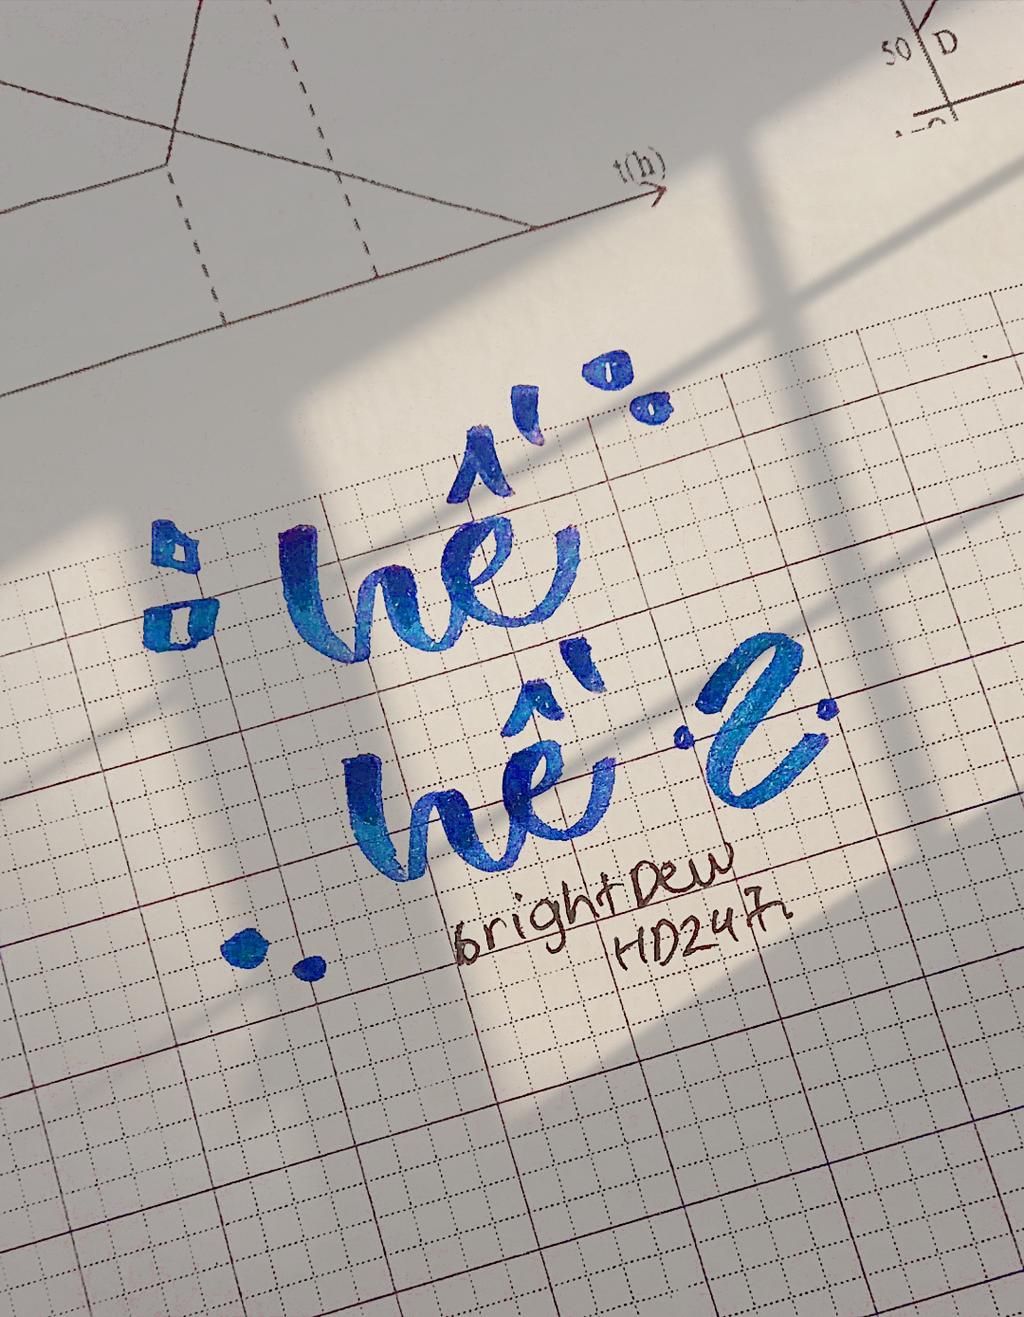 50 D
t(h)
hế
hế 2
brightDew
HD247